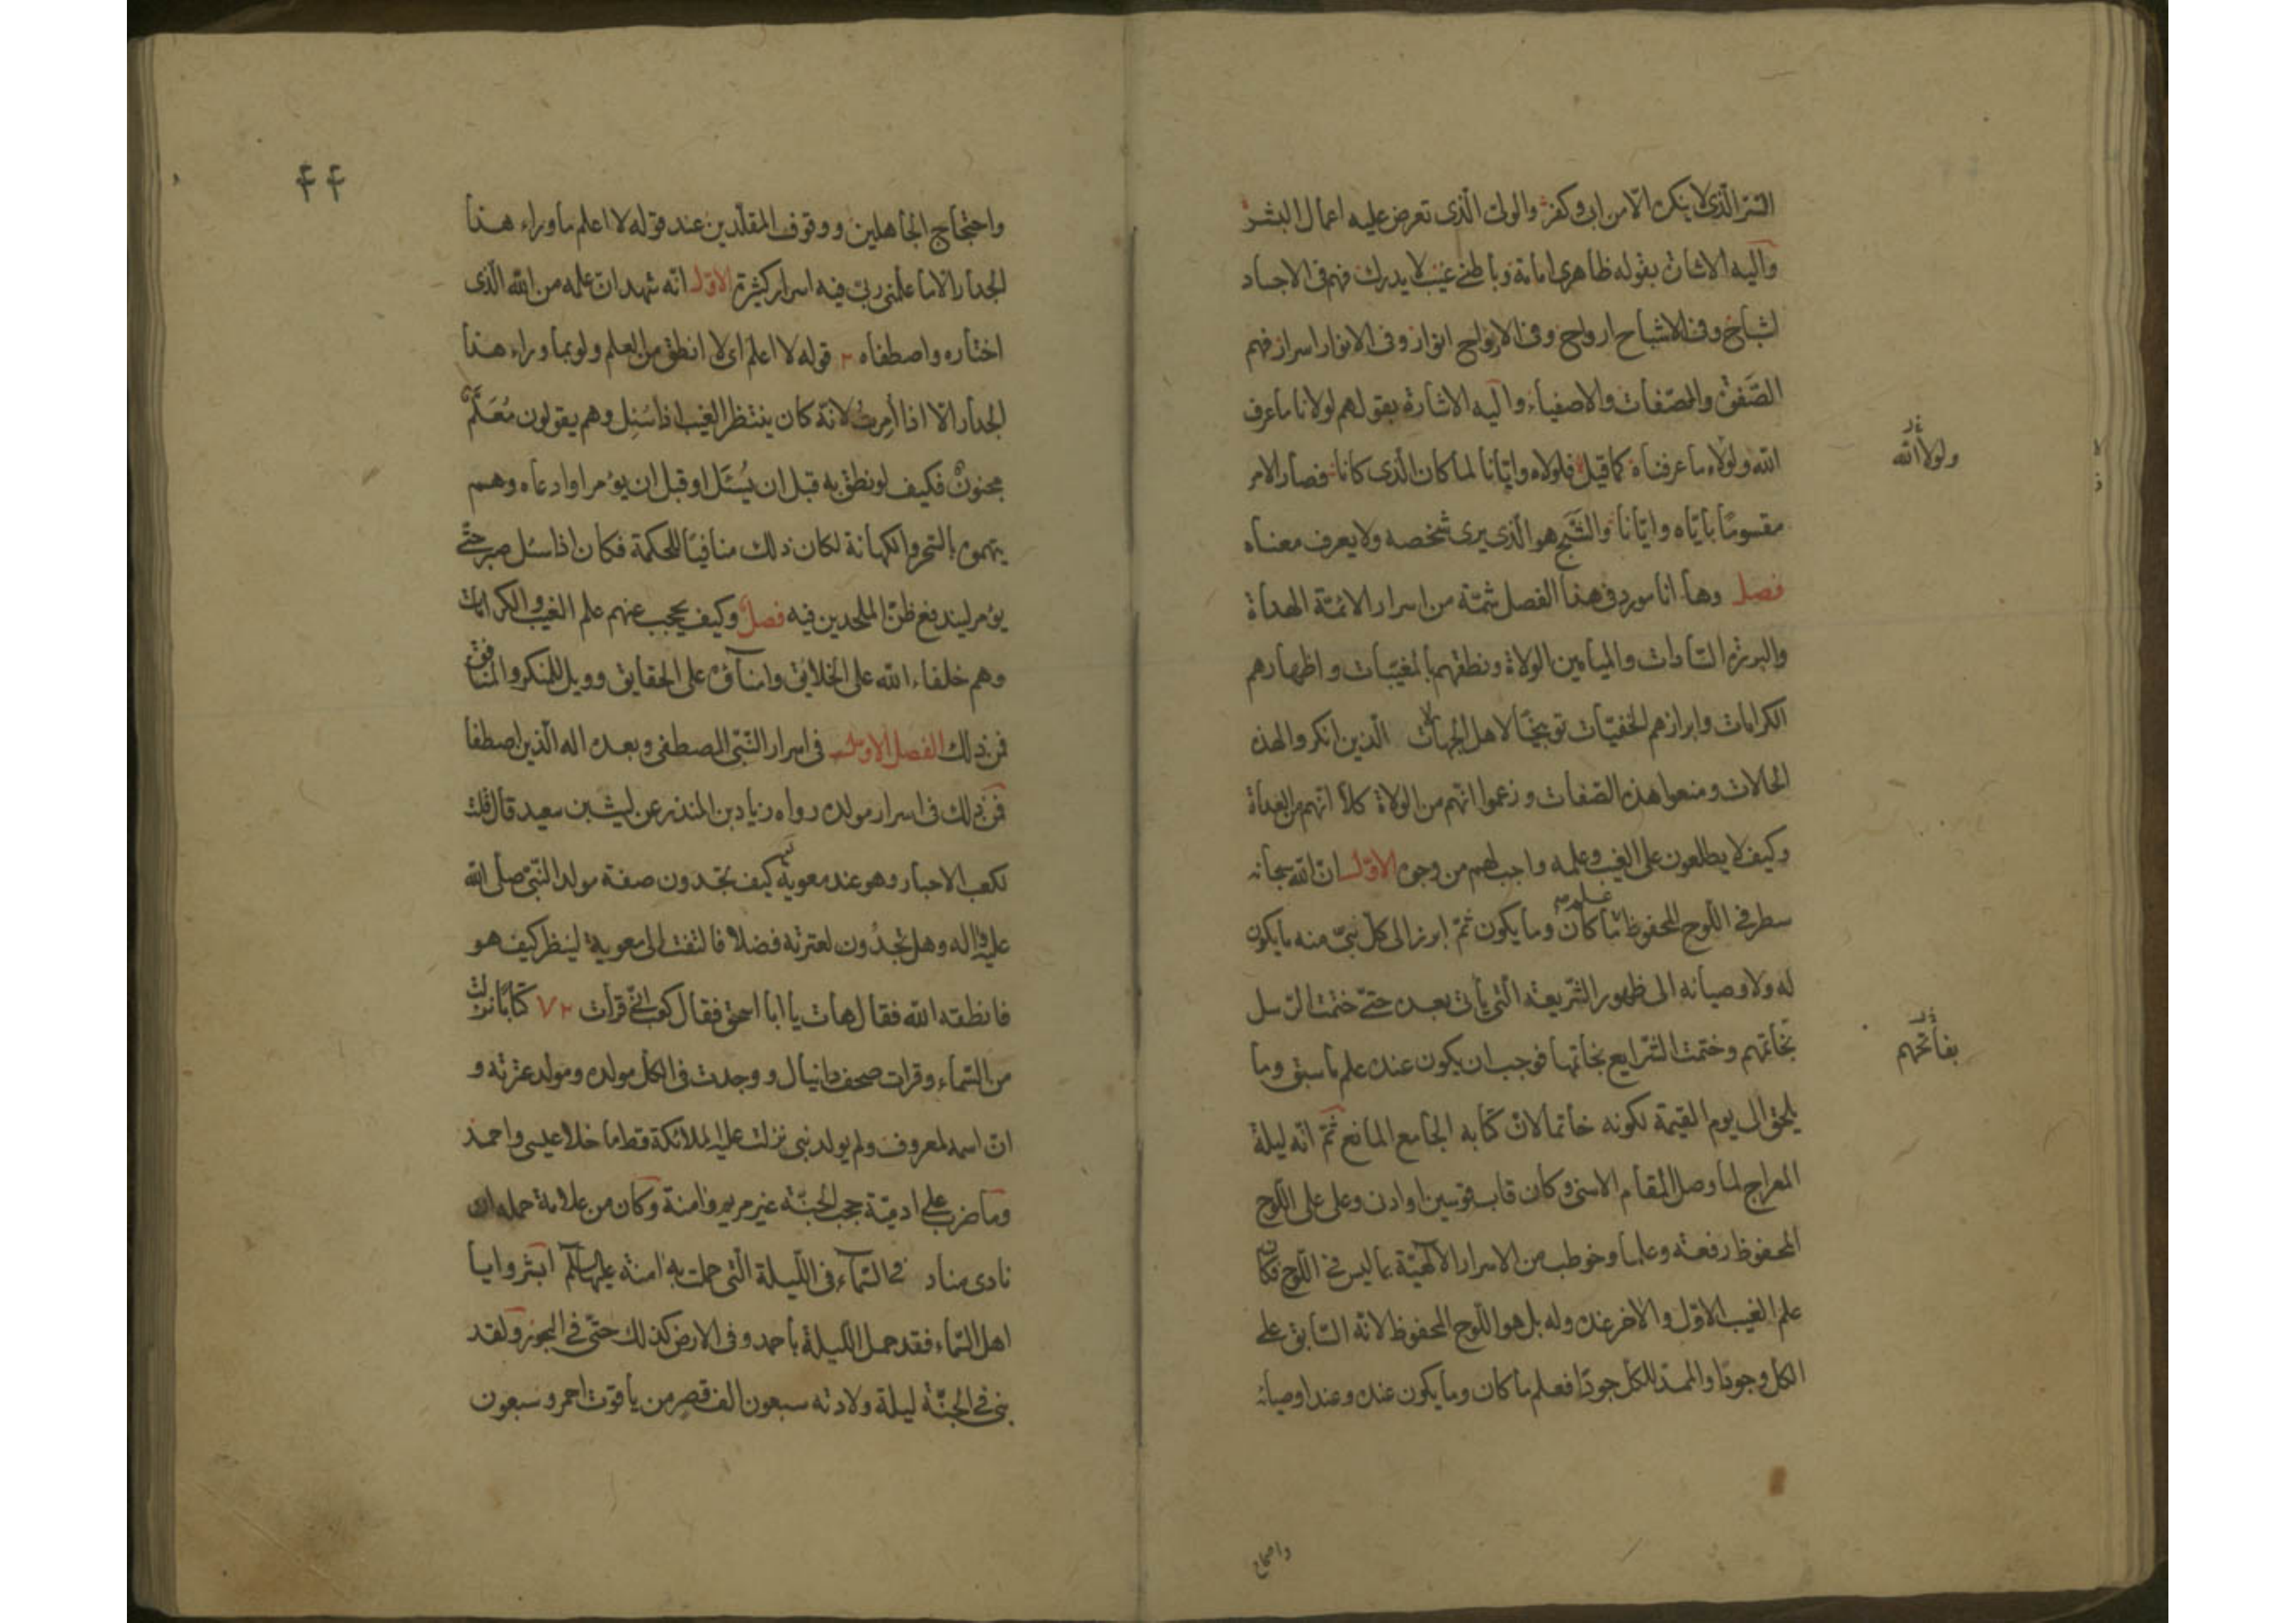 السّر الّذی لا ینکره الّا من ابی وکفر والولی الّذی تعرض علیه اعمال البشر
والیه الاشارة بقوله ظاهری امامة وباطنی غیب لا یدرک فهم فی الاجساد
اشباح وفی الاشباح ارواح وفی الارواح انوار وفی الانوار اسرار فهم
الصّفوة والصّفات والاصفیاء والیه الاشارة بقولهم لولانا ما عرف
الله ولولاه ما عرفناه کما قیل فلولاه وایّانا لما کان الّذی کانا فصار الامر
ولولا الله
مقسومًا بایّاه وایّانا والشَّبَح هو الّذی یری شخصه ولا یعرف معناه
فصل وها انا مورد فی هذا الفصل شمّة من اسرار الائمّة الهداة
والبررة السّادات والمیامین الولاة ونطقهم بالمغیّبات واظهارهم
الکرامات وابرازهم الخفیّات توبیخًا لاهل الجهالات الّذین انکروا لهذه
الحالات ومنعوا هذه الصّفات وزعموا انّهم من الولاة کلّا انّهم من العداة
وکیف لا یطلعون علی الغیب وعلمه واجب لهم من وجوه الاوّل انّ الله سبحانه
سطر فی اللّوح المحفوظ علم ما کان وما یکون ثمّ ابرز الی کلّ نبیّ منه ما یکون
له ولاوصیائه الی ظهور الشّریعة الّتی یأتی بعده حتّی ختمت الرّسل
بخاتمهم وختمت الشّرایع بخاتمها فوجب ان یکون عنده علم ما سبق وما
بفاتحهم
یلحق الی یوم القیمة لکونه خاتما لانّ کتابه الجامع المانع ثمّ انّه لیلة
المعراج لما وصل المقام الاسنی وکان قاب قوسین او ادنی وعلی علی اللّوح
المحفوظ رفعته وعلما وخوطب من الاسرار الالهیّة بما لیس فی اللّوح فکان
علم الغیب الاوّل والاخر عنده وله بل هو اللّوح المحفوظ لانّه السّابق علی
الکل وجودًا والممدّ للکل جودًا فعلم ما کان وما یکون عنده وعند اوصیائه
۴۴
واحتجاج الجاهلین ووقوف المقلّدین عند قوله لا اعلم ما وراء هذا
الجدار الّا ما علّمنی ربّی فیه اسرار کثیرة الاوّل انّه شهد انّ علمه من الله الّذی
اختاره واصطفاه ۲ قوله لا اعلم ای لا انطق من العلم ولو بما وراء هذا
الجدار الّا اذا اُمِرتُ لانّه کان ینتظر الغیب اذا سُئِل وهم یقولون مُعَلَّمٌ
مجنونٌ فکیف لو نطق به قبل ان یُسئَل او قبل ان یؤمر او ادعاه وهم
یتهموه بالسّحر والکهانة لکان ذلک منافیًا للحکمة فکان اذا سُئل صبر حتّی
یؤمر لیندفع ظنّ الملحدین فیه فصل وکیف یحجب عنهم علم الغیب والکرامات
وهم خلفاء الله علی الخلایق وامناؤه علی الحقایق وویل للمنکر والمنافق
فمن ذلک الفصل الاوّل فی اسرار النّبیّ المصطفی وبعده اله الّذین اصطفا
فمن ذلک فی اسرار مولده رواه زیاد بن المنذر عن لیث بن سعید قال قلت
لکعب الاحبار وهو عند معویة کیف تجدون صفة مولد النّبیّ صلّی الله
علیه واله وهل تجدُون لعترته فضلا فالتفت الی معویة لینظر کیف هو
فانطقه الله فقال هات یا ابا اسحق فقال کعب انّی قرأت ۷۲ کتابًا نزلت
من السّماء وقرأت صحف دانیال ووجدت فی الکل مولده ومولد عترته و
انّ اسمه لمعروف ولم یولد نبی نزلت علیه الملائکة قط ما خلا عیسی واحمد
وما ضرب علی ادمیّة حجب الجنّة غیر مریم وامنة وکان من علامة حمله ان
نادی مناد فی السّماء فی اللّیلة الّتی حملت به امنة علیها السّلم ابشروا یا
اهل السّماء فقد حمل اللّیلة باحمد وفی الارض کذلک حتّی فی البحور ولقد
بنی فی الجنّة لیلة ولادته سبعون الف قصر من یاقوت احمر وسبعون